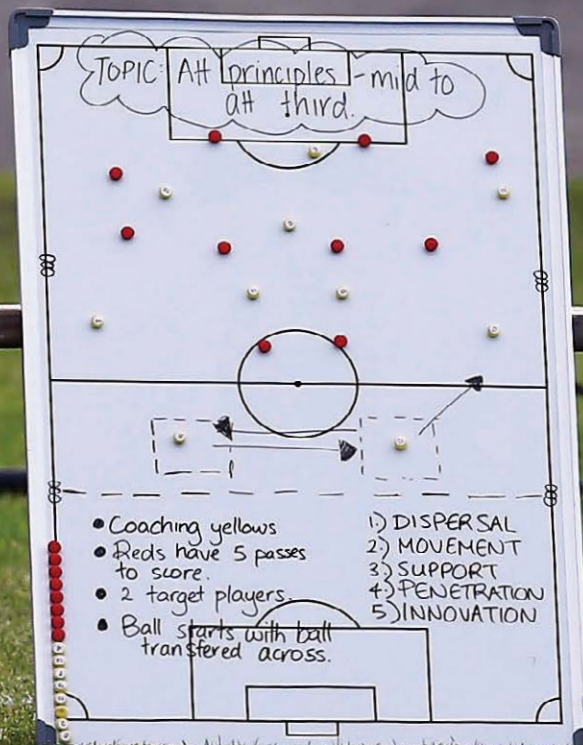 TOPIC: Att principles - mid to
att third.
• Coaching yellows
• Reds have 5 passes
to score.
• 2 target players.
• Ball starts with ball
transfered across.
1.) DISPERSAL
2.) MOVEMENT
3.) SUPPORT
4.) PENETRATION
5.) INNOVATION